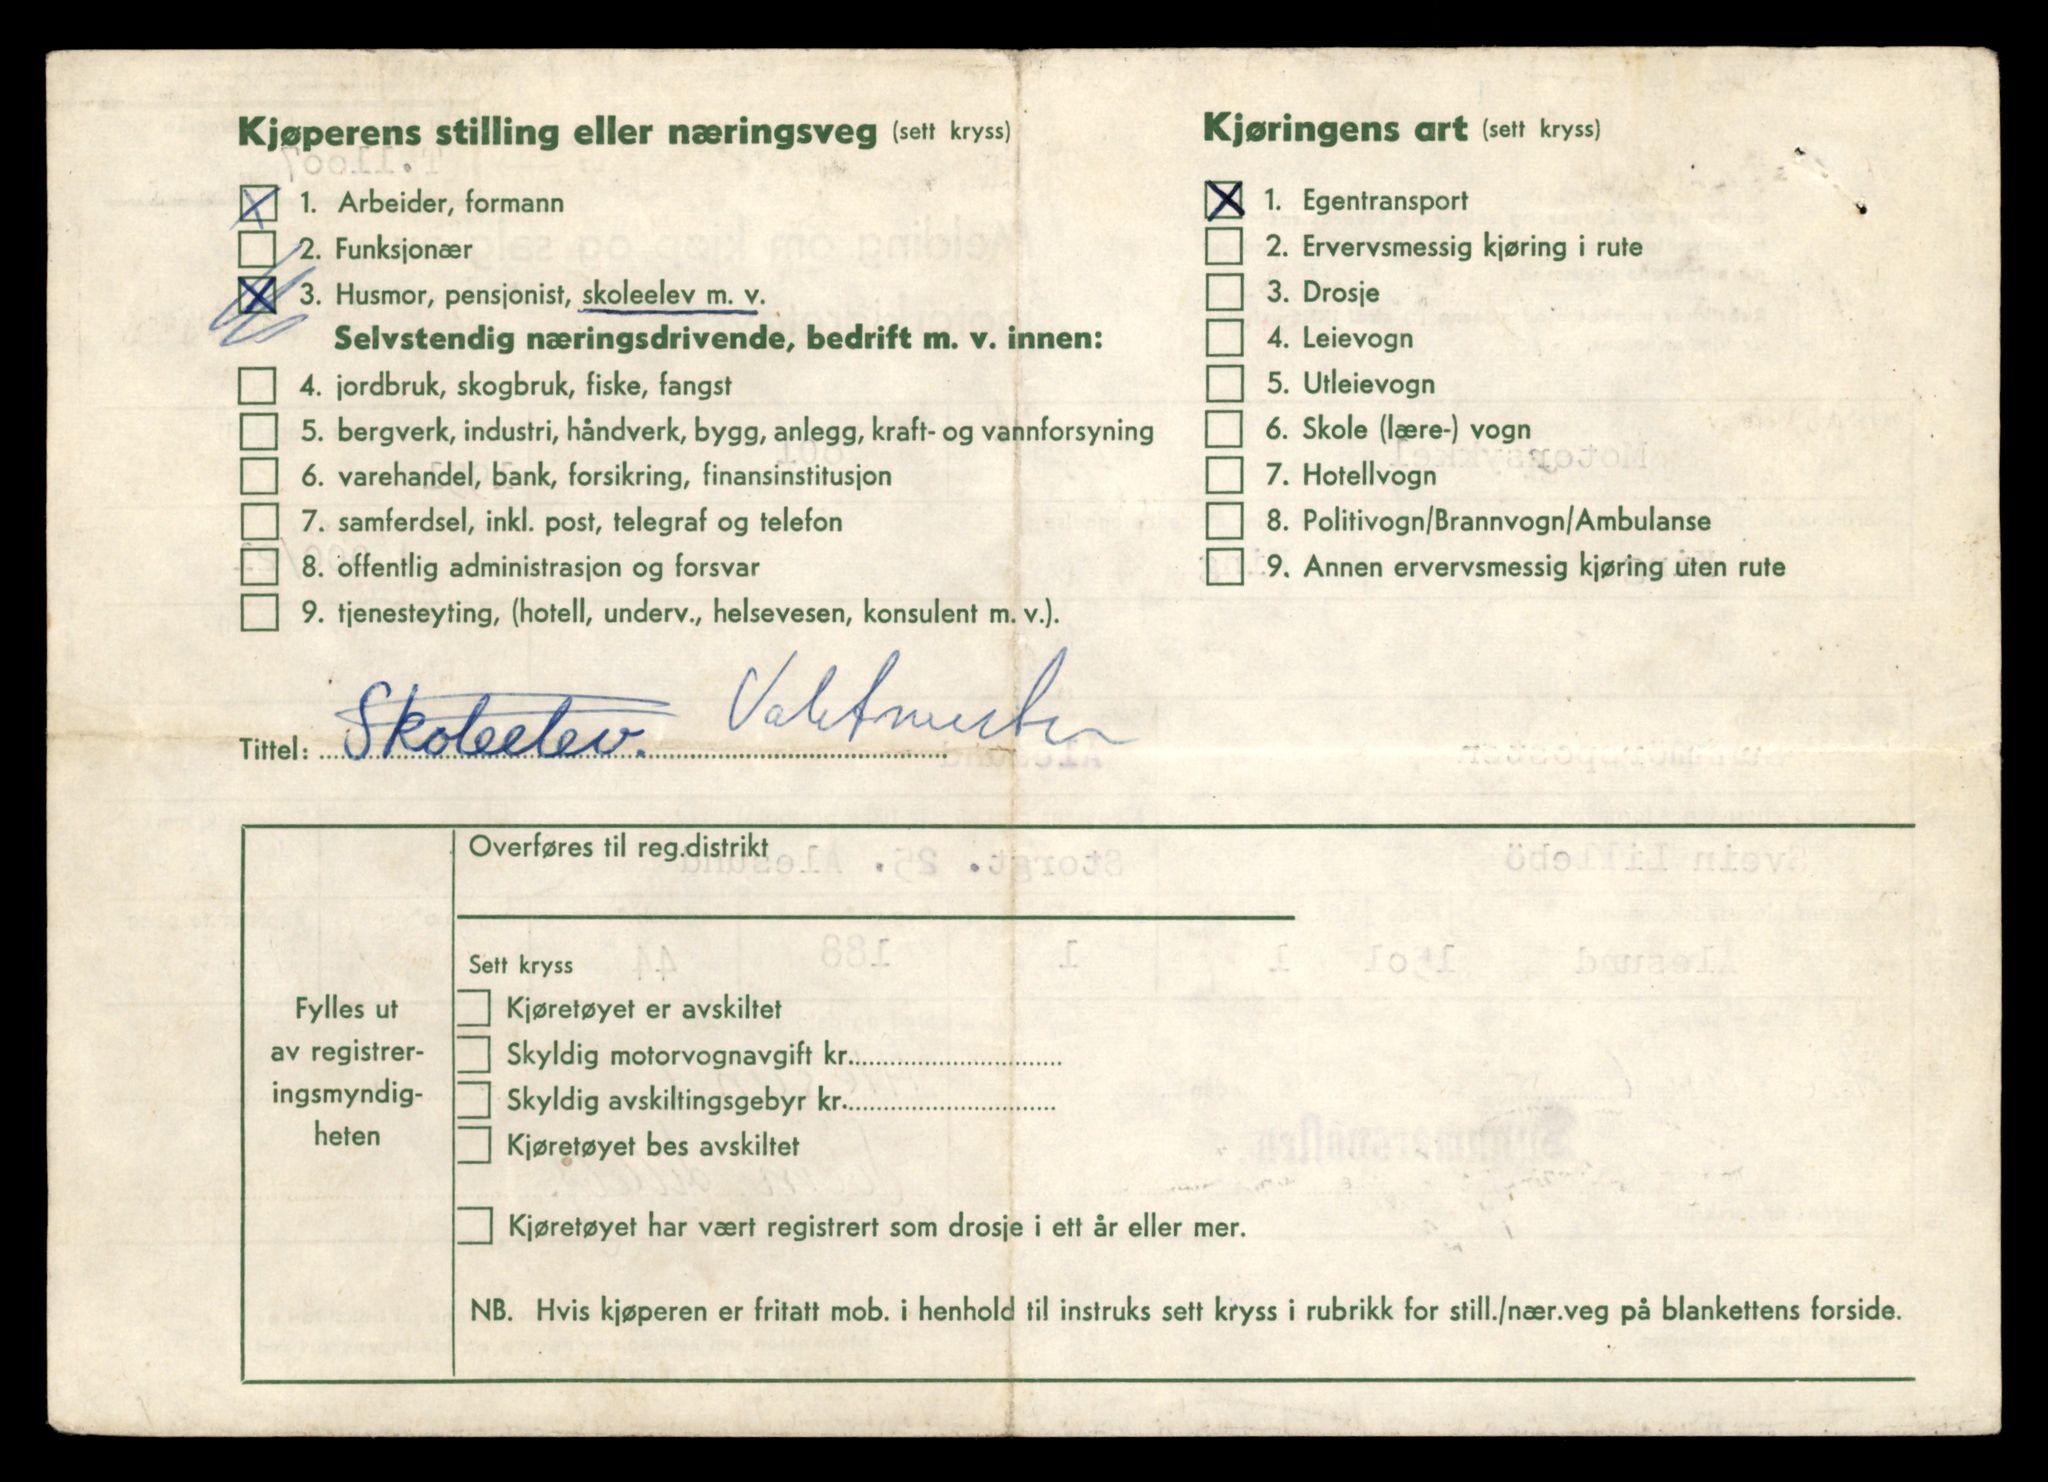 Kjøperens stilling eller næringsveg (sett kryss)
1. Arbeider, formann
2. Funksjonær
3. Husmor, pensjonist, skoleelev m. v.
Selvstendig næringsdrivende, bedrift m. v. innen:
4. jordbruk, skogbruk, fiske, fangst
5. bergverk, industri, håndverk, bygg, anlegg, kraft- og vannforsyning
6. varehandel, bank, forsikring, finansinstitusjon
7. samferdsel, inkl. post, telegraf og telefon
8. offentlig administrasjon og forsvar
9. tjenesteyting, (hotell, underv., helsevesen, konsulent m. v.).
Kjøringens art (sett kryss)
1. Egentransport
2. Ervervsmessig kjøring i rute
3. Drosje
4. Leievogn
5. Utleievogn
6. Skole (lære-) vogn
7. Hotellvogn
8. Politivogn/Brannvogn/Ambulanse
9. Annen ervervsmessig kjøring uten rute
Tittel: Skoleelev.
Fylles ut
av registrer-
ingsmyndig-
heten
Overføres til reg.distrikt
Sett kryss
Kjøretøyet er avskiltet
Skyldig motorvognavgift kr.
Skyldig avskiltingsgebyr kr.
Kjøretøyet bes avskiltet
Kjøretøyet har vært registrert som drosje i ett år eller mer.
NB. Hvis kjøperen er fritatt mob. i henhold til instruks sett kryss i rubrikk for still./nær.veg på blankettens forside.